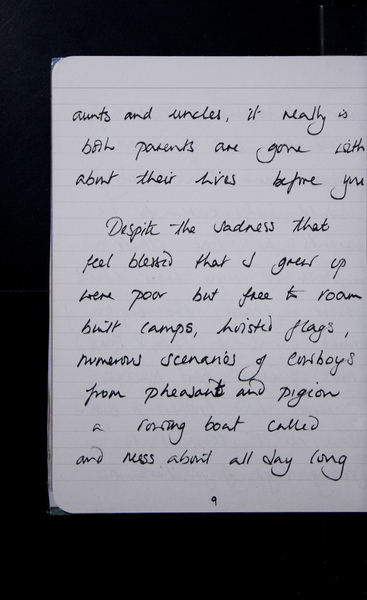 aunts and uncles, it really is
both parents are gone with
about their lives before you
Despite the sadness that
feel blessed that I grew up
were poor but free to roam
built camps, hoisted flags,
numerous scenarios of cowboys
from pheasant and pigion
a rowing boat called
and mess about all day long
9